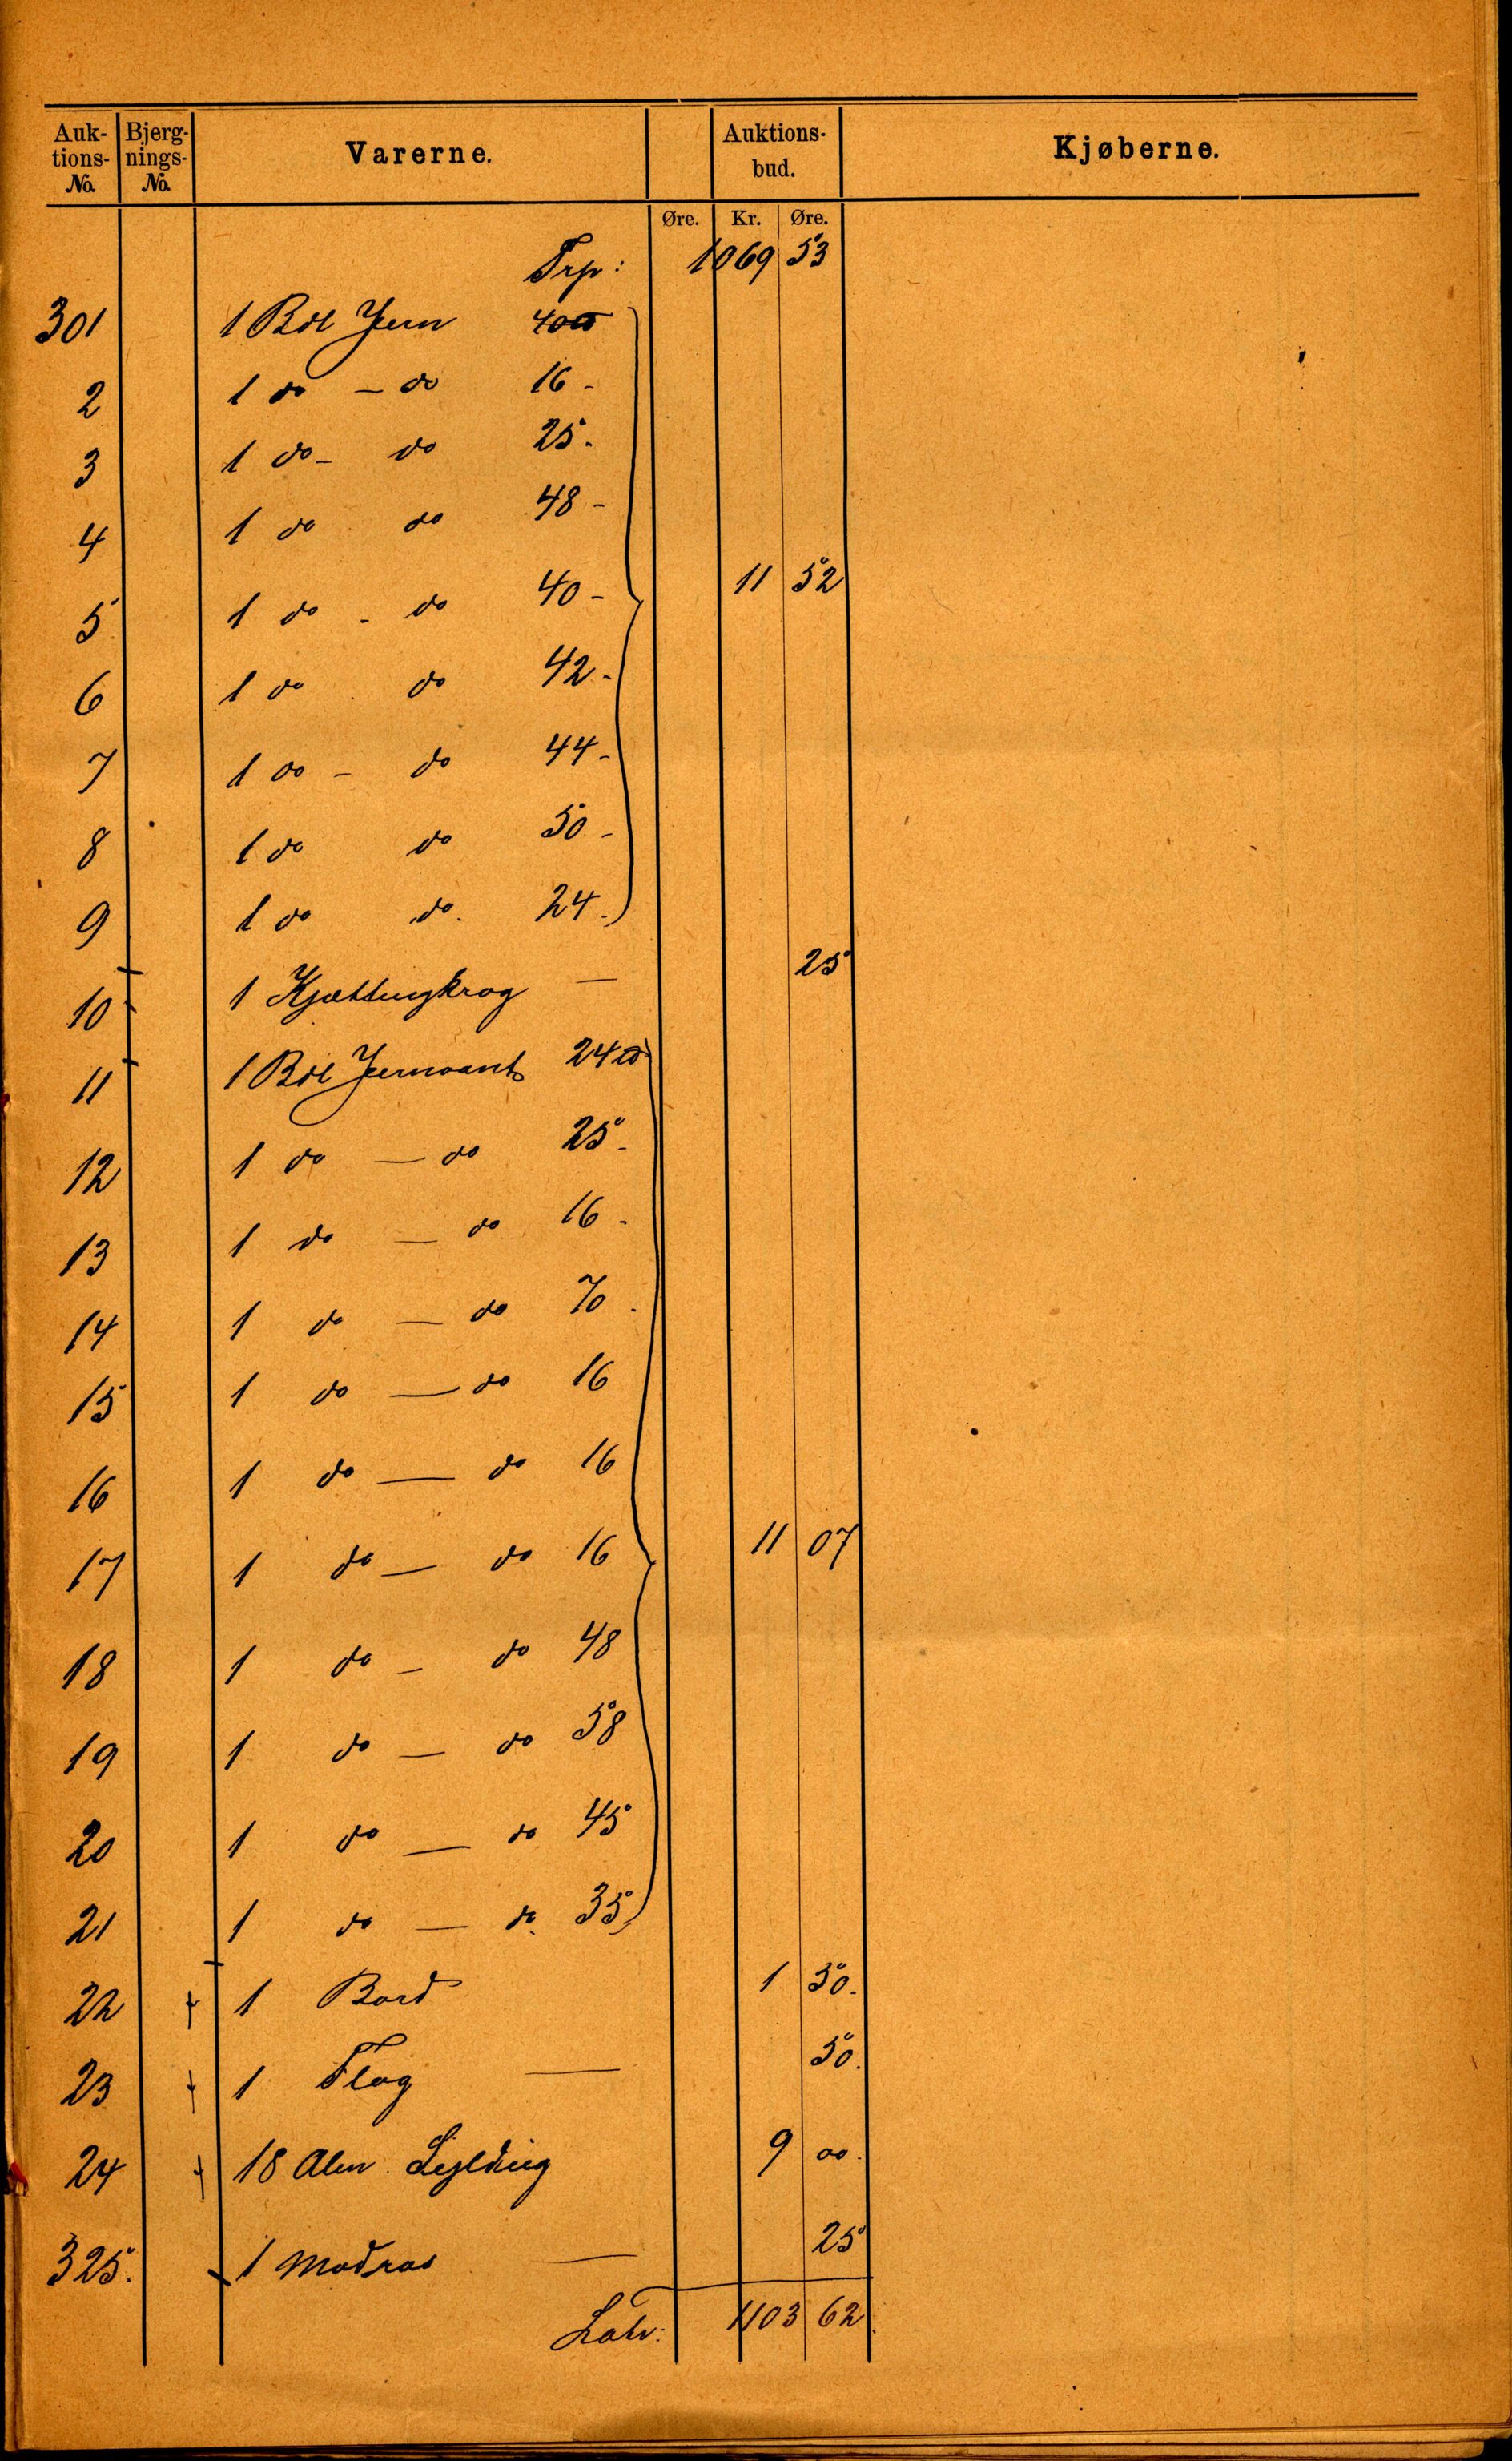 Auk- Bjerg- Varerne. Auktions- Kjøberne.
tions- nings- bud.
No. No.
Øre. Kr. Øre.
Trp: 1069 53
301 1 Bdl Jern 40 ℔
2 1 do - do 16 -
3 1 do - do 25 -
4 1 do do 48 -
5 1 do - do 40 - 11 52
6 1 do do 42 -
7 1 do - do 44 -
8 1 do do 50 -
9 1 do do 24 -
10 1 Kjættingkrog — 25
11 1 Bdl Jernvant 24 ℔
12 1 do — do 25 -
13 1 do — do 16 -
14 1 do — do 70 -
15 1 do — do 16
16 1 do — do 16
17 1 do — do 16 11 07
18 1 do — do 48
19 1 do — do 58
20 1 do — do 45
21 1 do — do 35
22 1 Bord 1 50.
23 1 Flag — 50.
24 18 Alen 9 00.
325. 1 Madras — 25
Latr: 1103 62